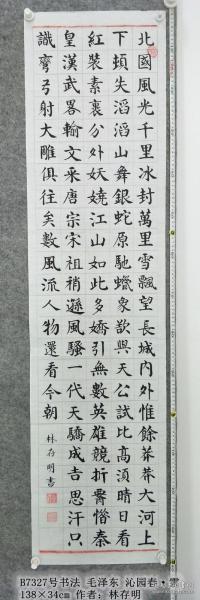 北國風光千里冰封萬里雪飄望長城內外惟餘莽莽大河上
下頓失滔滔山舞銀蛇原馳蠟象欲與天公試比高須晴日看
紅裝素裹分外妖嬈江山如此多嬌引無數英雄競折腰惜秦
皇漢武畧輸文采唐宗宋祖稍遜風騷一代天驕成吉思汗只
識彎弓射大雕俱往矣數風流人物還看今朝
林存明書
B7327号书法 毛泽东 沁园春·雪
138×34cm 作者：林存明